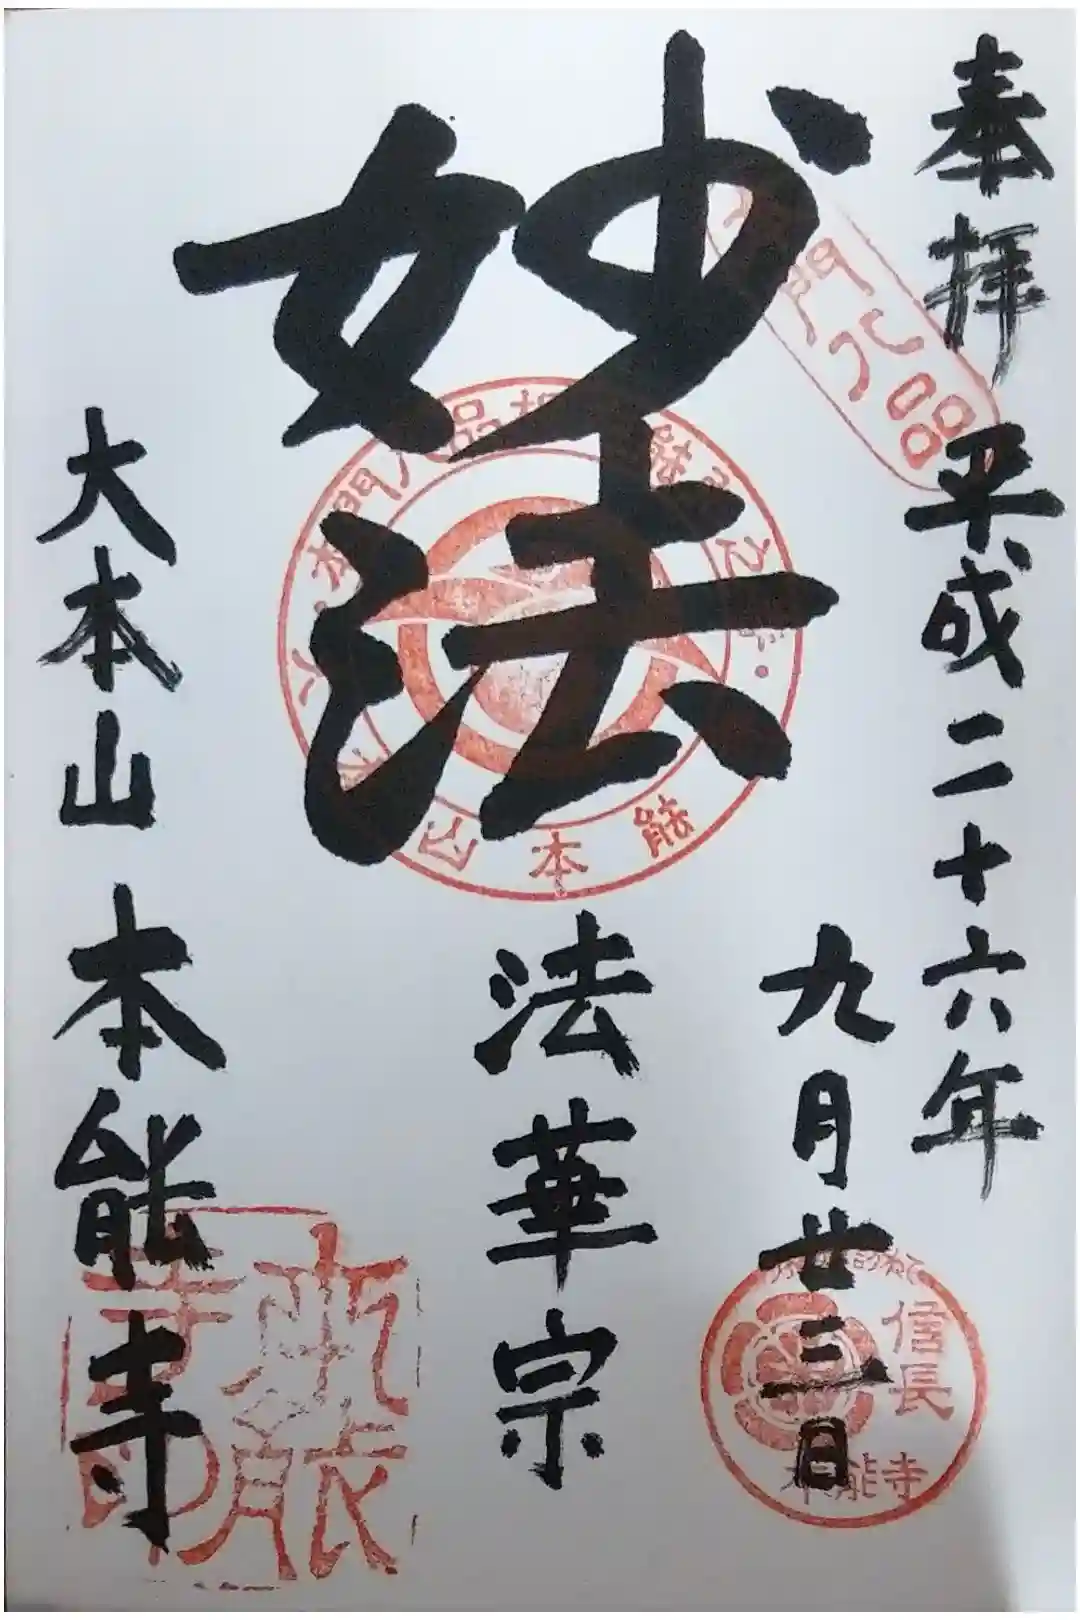 奉拝
平成二十六年
九月廿三日
妙法
法華宗
大本山
本能寺
門八品
信長
本能寺